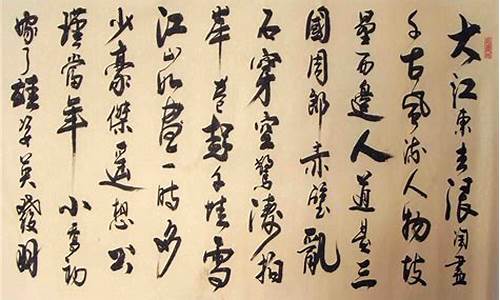 大江東去浪淘盡
千古風流人物故
壘西邊人道是三
國周郎赤壁亂
石穿空驚濤拍
岸卷起千堆雪
江山如畫一時多
少豪傑遙想公
瑾當年小喬初
嫁了雄姿英發羽